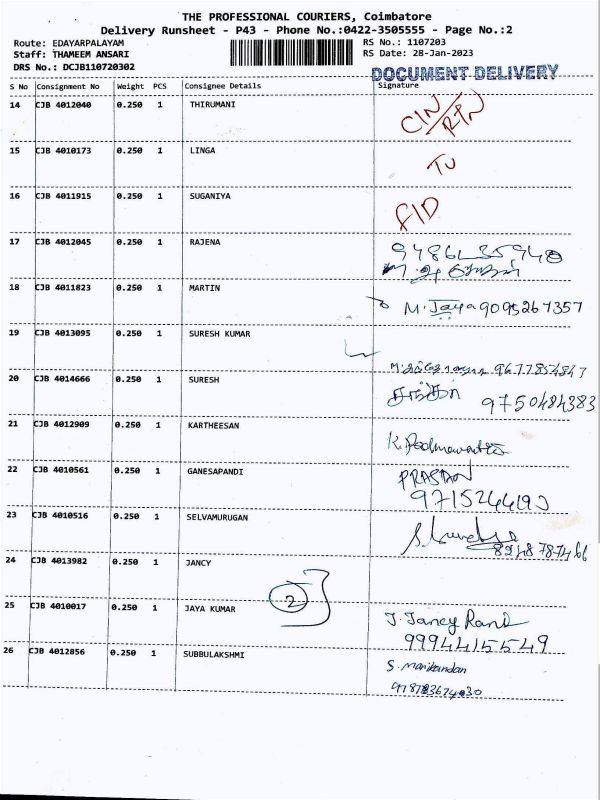 THE PROFESSIONAL COURIERS, Coimbatore
Delivery Runsheet - P43 - Phone No.:0422-3505555 - Page No.:2
Route: EDAYARPALAYAM
Staff: THAMEEM ANSARI
DRS No.: DCJB110720302
RS No.: 1107203
RS Date: 28-Jan-2023
DOCUMENT DELIVERY
S No Consignment No Weight PCS Consignee Details Signature
14 CJB 4012040 0.250 1 THIRUMANI CIN/RTN
15 CJB 4010173 0.250 1 LINGA
16 CJB 4011915 0.250 1 SUGANIYA
17 CJB 4012045 0.250 1 RAJENA
18 CJB 4011823 0.250 1 MARTIN M. Jaya 9095267357
19 CJB 4013095 0.250 1 SURESH KUMAR 9677854847
20 CJB 4014666 0.250 1 SURESH 9750484383
21 CJB 4012909 0.250 1 KARTHEESAN
22 CJB 4010561 0.250 1 GANESAPANDI
23 CJB 4010516 0.250 1 SELVAMURUGAN
24 CJB 4013982 0.250 1 JANCY
2
25 CJB 4010017 0.250 1 JAYA KUMAR J. Jancy Rani
9994415549
26 CJB 4012856 0.250 1 SUBBULAKSHMI S. Manikandan